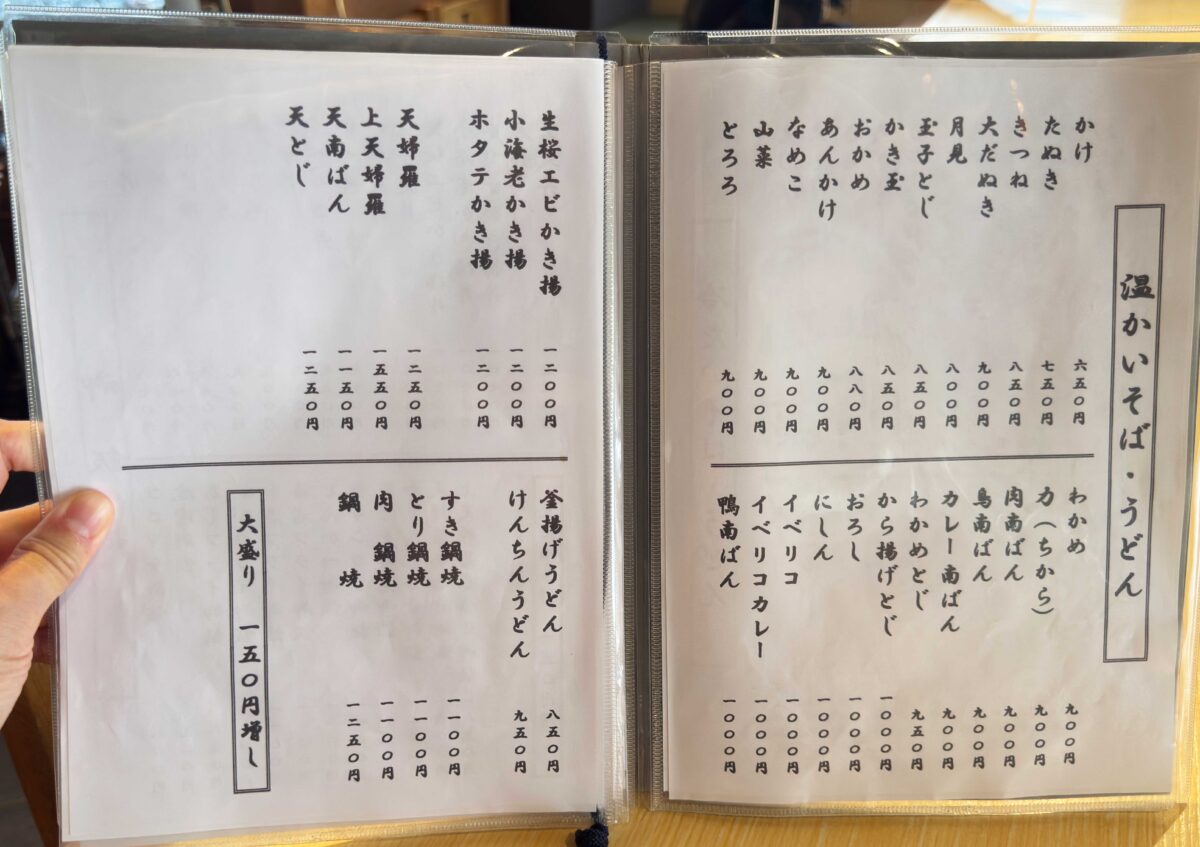 温かいそば・うどん
かけ 六五〇円
たぬき 七五〇円
きつね 八五〇円
大だぬき 九〇〇円
月見 八〇〇円
玉子とじ 八五〇円
かき玉 八五〇円
おかめ 八八〇円
あんかけ 九〇〇円
なめこ 九〇〇円
山菜 九〇〇円
とろろ 九〇〇円
わかめ 九〇〇円
力（ちから） 九〇〇円
肉南ばん 九〇〇円
鳥南ばん 九〇〇円
カレー南ばん 九〇〇円
わかめとじ 九五〇円
から揚げとじ 一〇〇〇円
おろし 一〇〇〇円
にしん 一〇〇〇円
イベリコ 一〇〇〇円
イベリコカレー 一〇〇〇円
鴨南ばん 一〇〇〇円
生桜エビかき揚 一二〇〇円
小海老かき揚 一二〇〇円
ホタテかき揚 一二〇〇円
天婦羅 一二五〇円
上天婦羅 一五五〇円
天南ばん 一一五〇円
天とじ 一二五〇円
釜揚げうどん 八五〇円
けんちんうどん 九五〇円
すき鍋焼 一一〇〇円
とり鍋焼 一一〇〇円
肉 鍋焼 一一〇〇円
鍋 焼 一二五〇円
大盛り 一五〇円増し